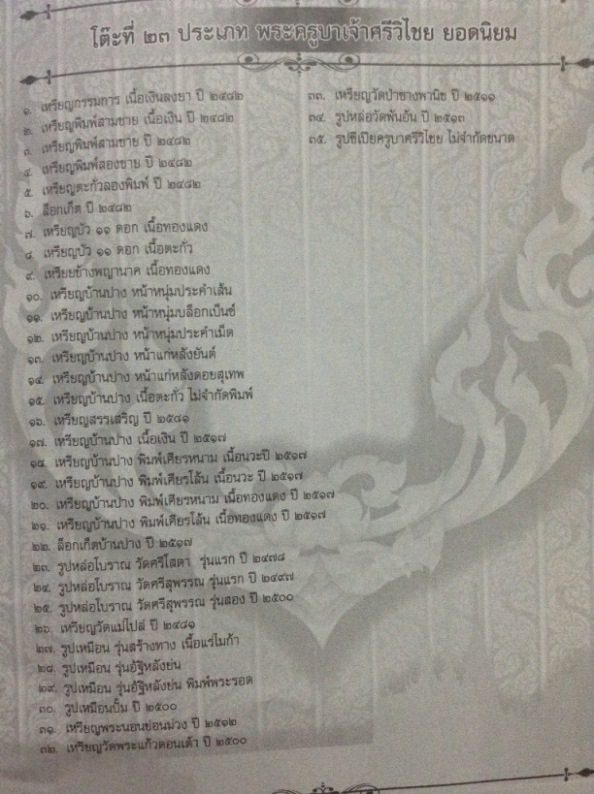 โต๊ะที่ ๒๓ ประเภท พระครูบาเจ้าศรีวิไชย ยอดนิยม
๑. เหรียญกรรมการ เนื้อเงินลงยา ปี ๒๔๘๒
๒. เหรียญพิมพ์สามชาย เนื้อเงิน ปี ๒๔๘๒
๓. เหรียญพิมพ์สามชาย ปี ๒๔๘๒
๔. เหรียญพิมพ์สองชาย ปี ๒๔๘๒
๕. เหรียญตะกั่วลองพิมพ์ ปี ๒๔๘๒
๖. ล็อกเก็ต ปี ๒๔๘๒
๗. เหรียญบัว ๑๑ ดอก เนื้อทองแดง
๘. เหรียญบัว ๑๑ ดอก เนื้อตะกั่ว
๙. เหรียยข้างพญานาค เนื้อทองแดง
๑๐. เหรียญบ้านปาง หน้าหนุ่มประคำเส้น
๑๑. เหรียญบ้านปาง หน้าหนุ่มบล็อกเป็นซ์
๑๒. เหรียญบ้านปาง หน้าหนุ่มประคำเม็ด
๑๓. เหรียญบ้านปาง หน้าแก่หลังยันต์
๑๔. เหรียญบ้านปาง หน้าแก่หลังดอยสุเทพ
๑๕. เหรียญบ้านปาง เนื้อตะกั่ว ไม่จำกัดพิมพ์
๑๖. เหรียญสรรเสริญ ปี ๒๔๘๑
๑๗. เหรียญบ้านปาง เนื้อเงิน ปี ๒๕๑๗
๑๘. เหรียญบ้านปาง พิมพ์เศียรหนาม เนื้อนวะปี ๒๕๑๗
๑๙. เหรียญบ้านปาง พิมพ์เศียรโล้น เนื้อนวะ ปี ๒๕๑๗
๒๐. เหรียญบ้านปาง พิมพ์เศียรหนาม เนื้อทองแดง ปี ๒๕๑๗
๒๑. เหรียญบ้านปาง พิมพ์เศียรโล้น เนื้อทองแดง ปี ๒๕๑๗
๒๒. ล็อกเก็ตบ้านปาง ปี ๒๕๑๗
๒๓. รูปหล่อโบราณ วัดศรีโสดา รุ่นแรก ปี ๒๔๗๘
๒๔. รูปหล่อโบราณ วัดศรีสุพรรณ รุ่นแรก ปี ๒๔๙๗
๒๕. รูปหล่อโบราณ วัดศรีสุพรรณ รุ่นสอง ปี ๒๕๐๐
๒๖. เหรียญวัดแม่ไปส่ ปี ๒๔๘๑
๒๗. รูปเหมือน รุ่นสร้างทาง เนื้อแร่ไมก้า
๒๘. รูปเหมือน รุ่นอัฐิหลังย่น
๒๙. รูปเหมือน รุ่นอัฐิหลังย่น พิมพ์พระรอด
๓๐. รูปเหมือนปั๊ม ปี ๒๕๐๐
๓๑. เหรียญพระนอนขอนม่วง ปี ๒๕๑๒
๓๒. เหรียญวัดพระแก้วดอนเต้า ปี ๒๕๐๐
๓๓. เหรียญวัดป่าซางพานิช ปี ๒๕๑๑
๓๔. รูปหล่อวัดพันอ้น ปี ๒๕๑๓
๓๕. รูปซีเปียครูบาศรีวิไชย ไม่จำกัดขนาด